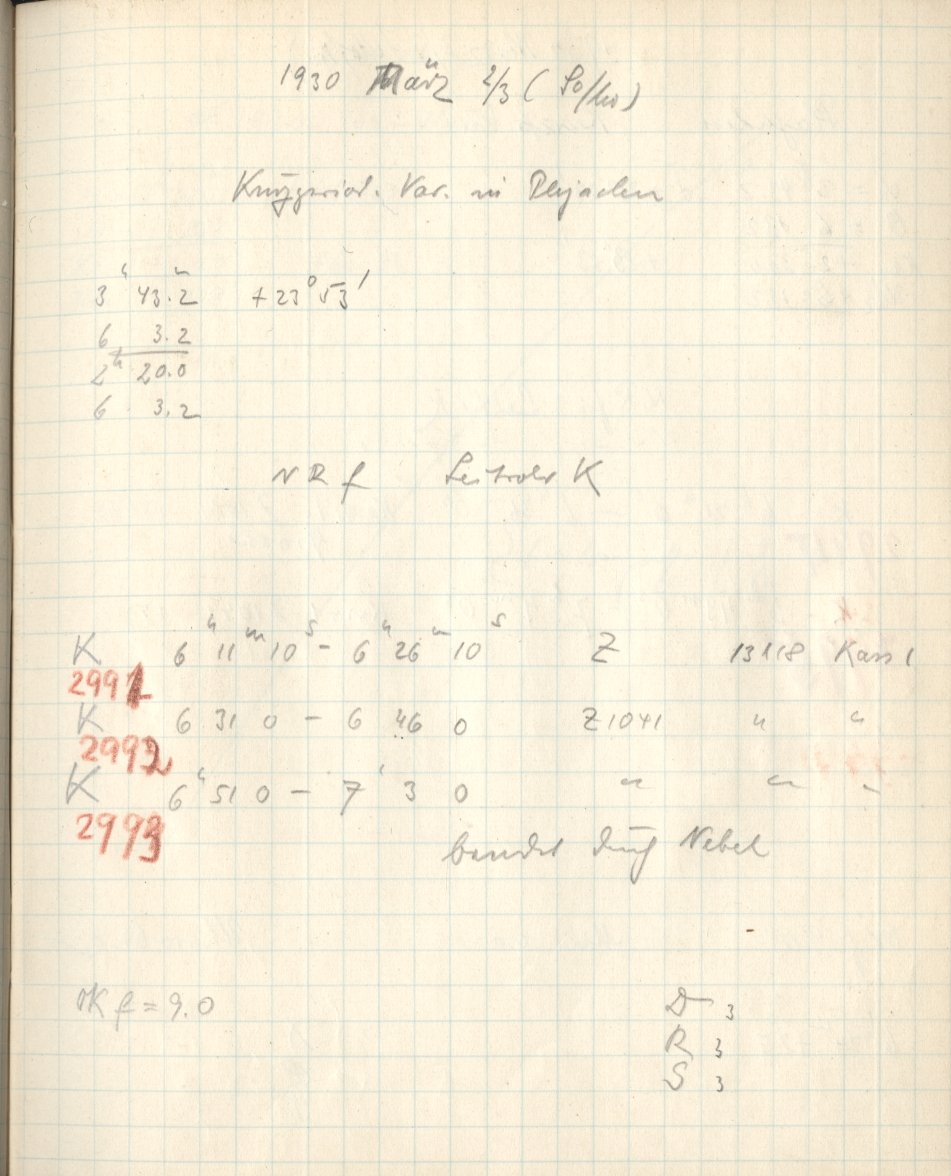 1930 März 2/3 (So/Mo)
Kurzperiod. Var. in Plejaden
3ʰ 43.ᵐ2 +23° 53'
6 3.2
2ʰ 20.0
6 3.2
N R f K
K 6ʰ 11ᵐ 10ˢ - 6ʰ 26ᵐ 10ˢ Z 13118 Kass 1
2991
K 6 31 0 - 6 46 0 Z1041 " "
2992
K 6ʰ 51 0 - 7ʰ 3 0 " " "
2993
beendet durch Nebel
f = 9.0
D 3
R 3
S 3